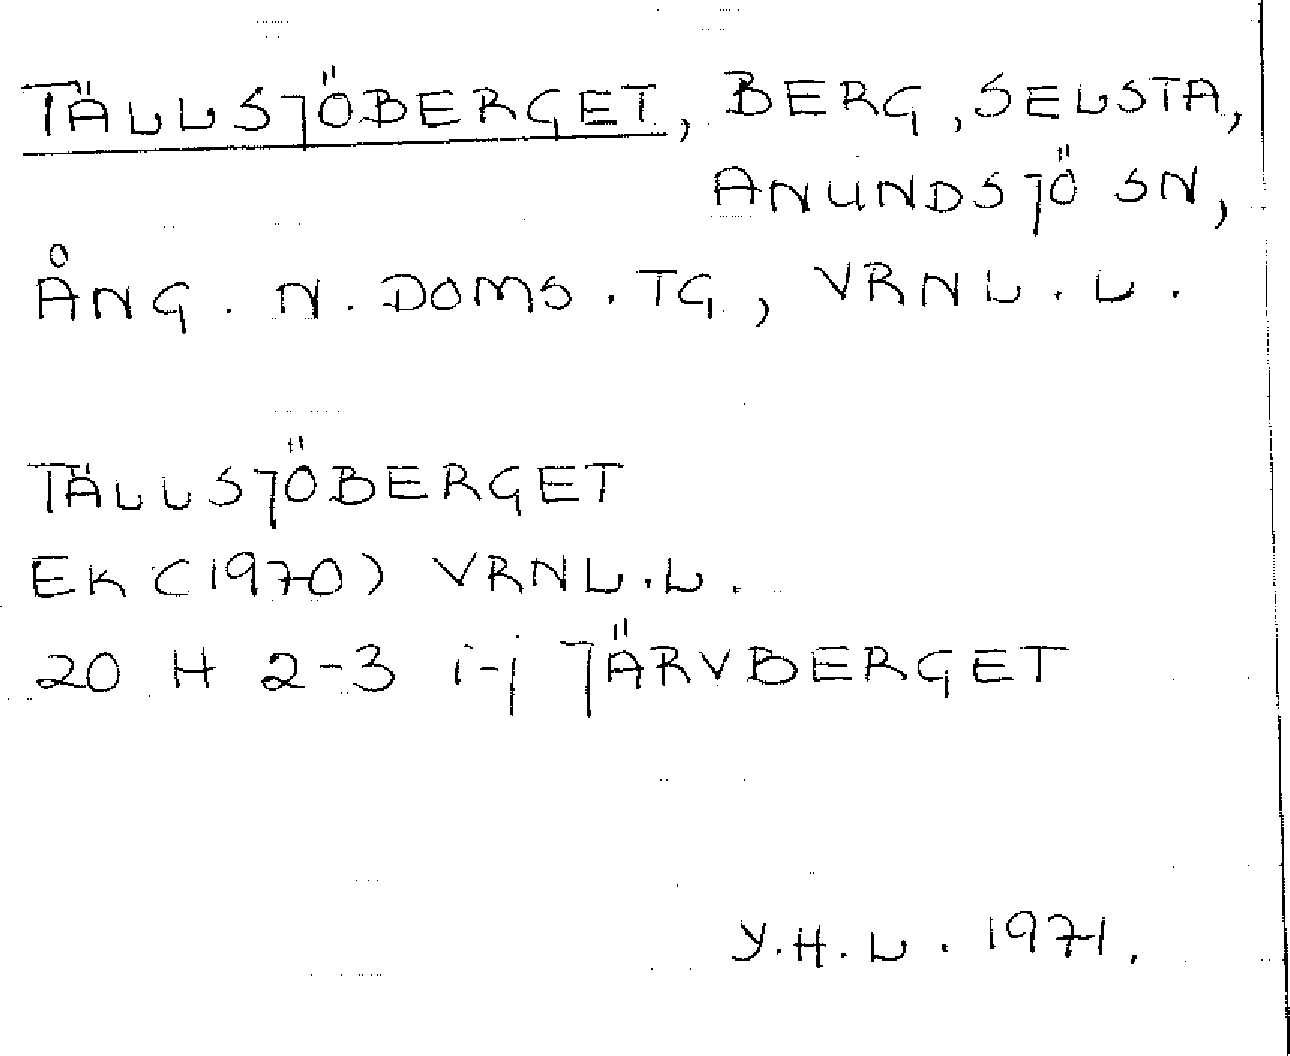 TÄLLSJÖBERGET, BERG, SELSTA,
ANUNDSJÖ SN,
ÅNG. N. DOMS. TG., VRNL. L.
TÄLLSJÖBERGET
EK (1970) VRNL. L.
20 H 2-3 i-j JÄRVBERGET
Y. H. L. 1971.